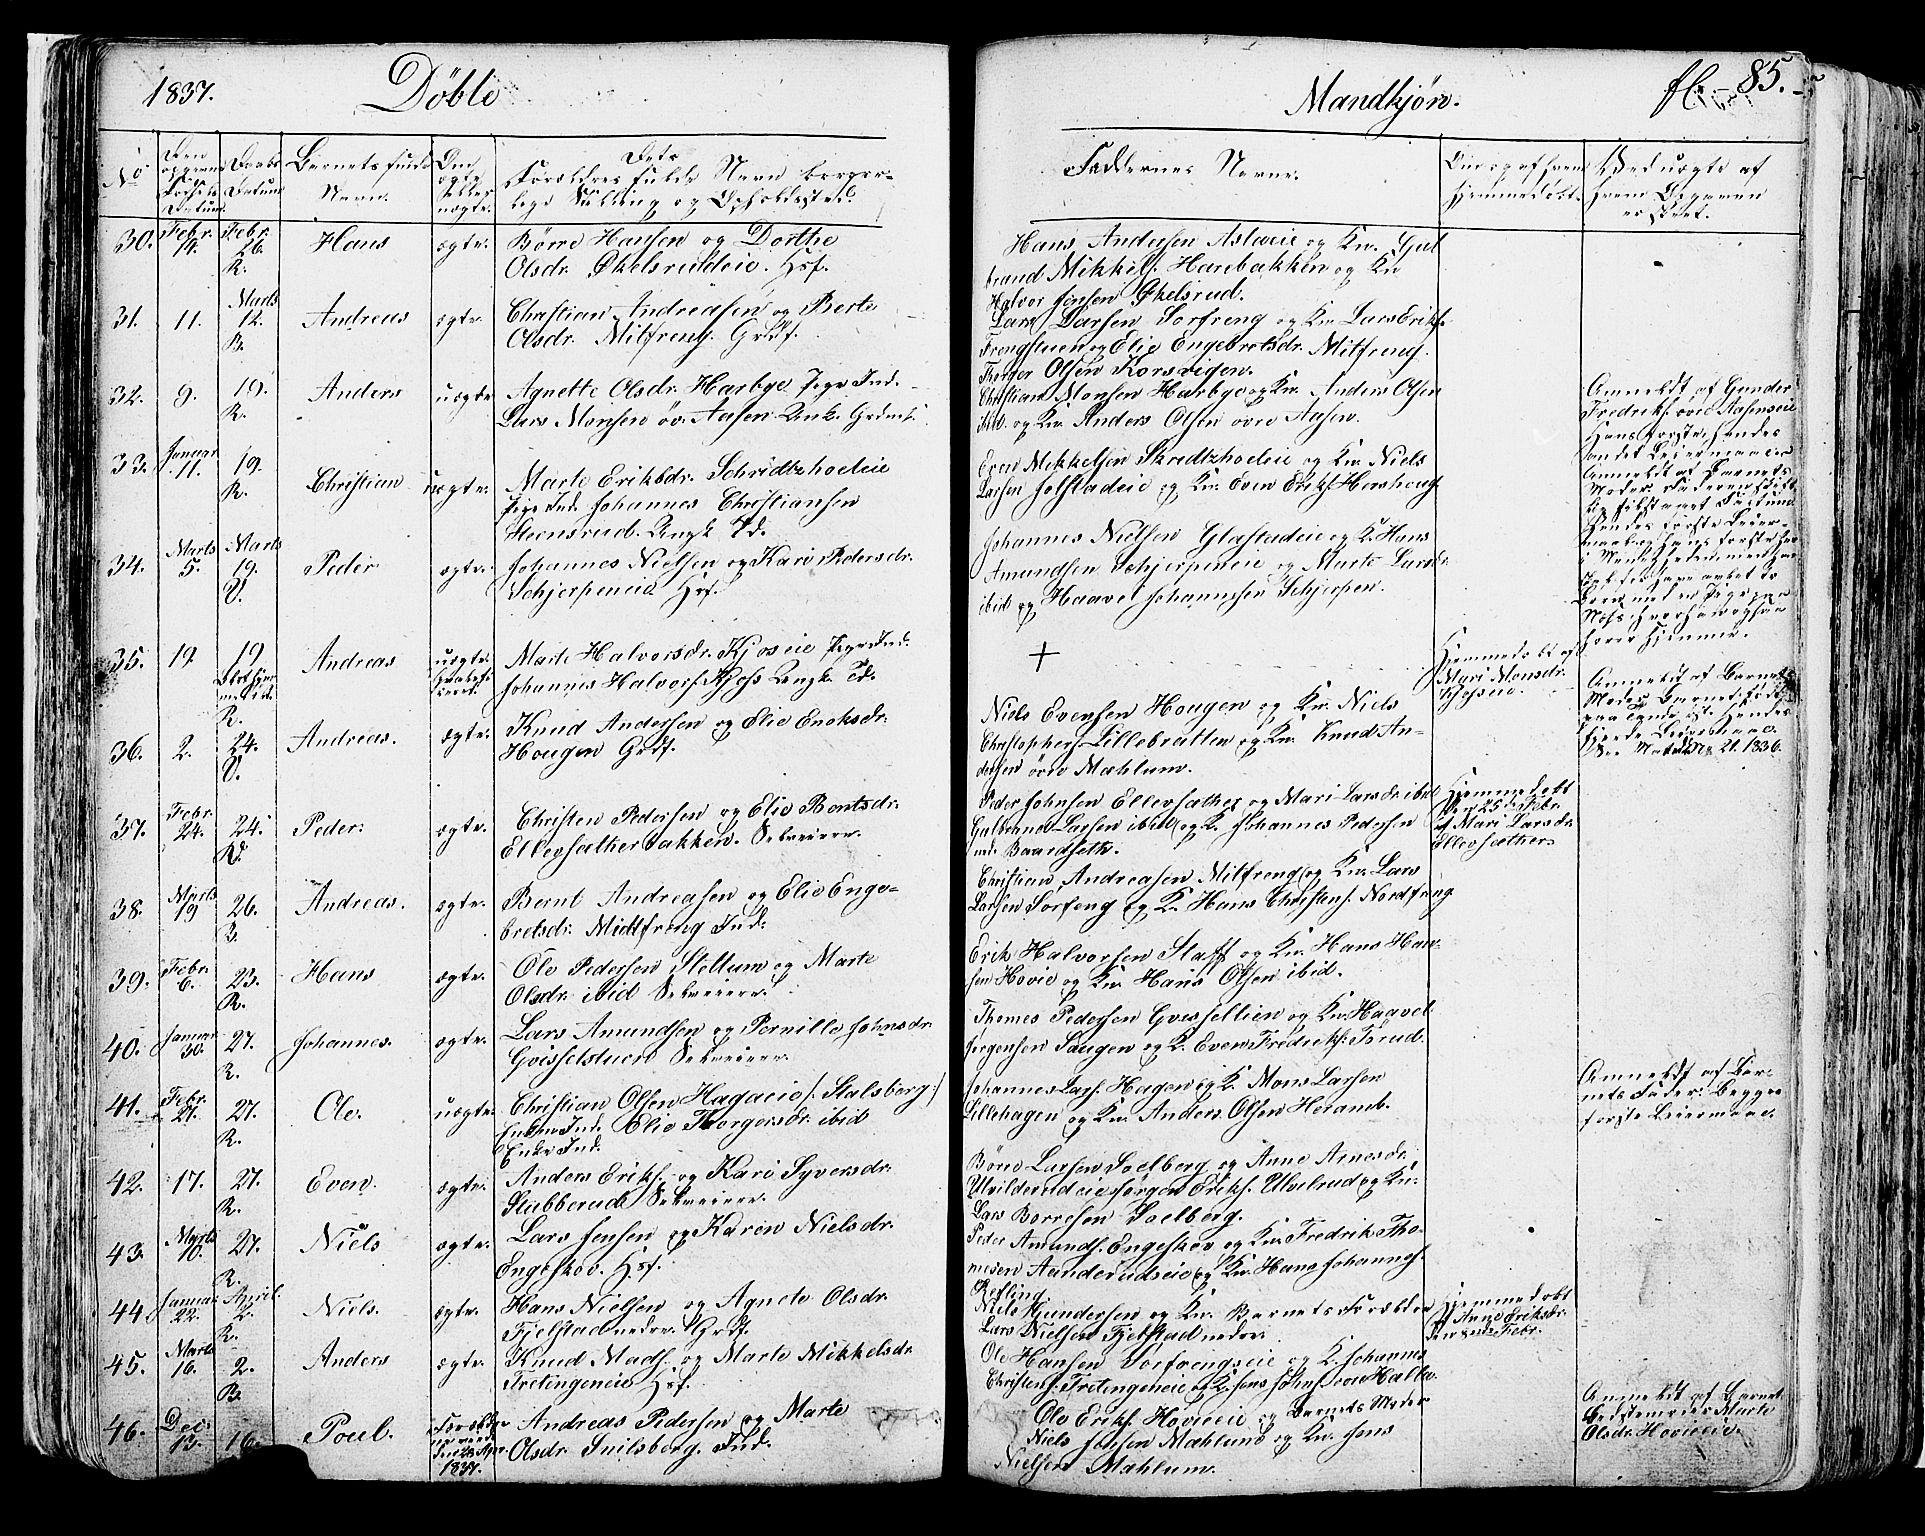 1837. Döbte
No
Den opgivne Fødsels Datum.
Daabs Datum
Barnets fulde Navn.
Om ægte eller uægte.
Dets Forældres fulde Navn borger-
lige Stilling og Opholdssted.
30. Febr. 14. Febr. 26. R. Hans ægte. Börre Hansen og Dorthe
Olsdr. Økelsrudeie. Hsf.
31. 11. Marts 12. B. Andreas ægte. Christian Andreasen og Berte
Olsdr. Mitfreng. Grdf.
32. 9. 19. R. Anders uægte Agnette Olsdr. Harbye Pige Ind.
Lars Monsen öv. Aasen Ungk.
33. Januar 11. 19. R. Christian uægte. Marte Eriksdr. Schridtzholeie
Pige Ind. Johannes Christiansen
Ungk Id.
34. Marts 5. Marts 19. Peder ægte. Johannes Nielsen og Kari Pedersdr.
Schjerpeneie Hsf.
35. 19. 19. R. Andreas uægte. Marte Halvorsdr. Kjoseie Pige Ind.
Johannes Halvors. Kjos Ungk. Id.
36. 2. 24. Andreas. ægte. Knud Andersen og Elie Enoksdr.
Hougen Grdf.
37. Febr. 24. 24. Peder. ægte. Christen Pedersen og Elie Bentsdr.
Ellevsætherbakken. Selveiere.
38. Marts 19 26. B. Andreas. ægte. Bernt Andreasen og Elie Enge-
bretsdr. Midtfreng Ind.
39. Febr. 6. 23. R. Hans ægte. Ole Pedersen Stellum og Marte
Olsdr. ibid Selveiere.
40. Januar 30. 27. R. Johannes. ægte. Lars Amundsen og Pernille Johnsdr.
Goisselstuen Selveiere.
41. Febr. 21. 27. R. Ole. uægte. Christian Olsen Hagaeie /: Stalsberg :/
Enkem. Ind. Elie Thorgersdr. ibid
Enke Ind.
42. 17. 27. R. Even. ægte. Anders Eriks. og Kari Syversdr.
Stubberud Selveiere.
43. Marts 10. 27. R. Niels ægte. Lars Jensen og Karen Nielsdr.
Engeskov. Hsf.
44 Januar 22. April 2. R. Niels. ægte. Hans Nielsen og Agnete Olsdr.
Fjelstad nedre. Grdf.
45. Marts 16. 2. B. Anders ægte. Knud Mads. og Marte Mikkelsdr.
Tretingeneie Hsf.
46. Dec. 13. 16. Poul. 1837. Andreas Pedersen og Marte
Olsdr. Snilsberg. Ind.
Mandkjøn. fl. 85.
Faddernes Navne.
Om og af hvem hjemmedøbt.
Ved uægte af hvem Opgaven er skeet.
Hans Andersen Astaeie og Kn. Gul
brand Mikkels. Harebakken og Kn
Halvor Jensen Økelsrud.
Lars Larsen Sorfreng og Kn. Lars Eriks.
Frengstuen og Elie Engebretsdr. Mitfreng.
Thorger Olsen Korsvigen.
Christian Monsen Harbye og Kn. Anders Olsen
ibid. og Kn. Anders Olsen övre Aasen.
Anmeldt af Gunder
Fredriks. övre Aasenseie
Hans første, hendes
andet Leiermaal.
Even Mikkelsen Skredtzholeie og Kn. Niels
Larsen Jolstadeie og Kn. Even Eriks. Hershoug
Anmeldt af Barnets
Moder.
Johannes Nielsen Glastadeie og K. Hans
Amundsen Schjerpeneie og Marte Larsdr.
ibid og Haavel Johannesen Schjerpen.
+
Hjemmedöbt af
Mari Monsdr.
Kjoseie.
Anmeldt af Barnets
Moder Barnet födt
1836.
Niels Evensen Hougen og Kn. Niels
Christophers. Lillebratten og Kn. Knud An-
dersen övre Mæhlum.
Peder Johnsen Ellevsæther og Mari Larsdr ibid
Gulbrand Larsen ibid og K. Johannes Pedersen
Baardseth.
Hjemmedöbt
den 25de Febr.
af Mari Larsdr.
Ellevsæther.
Christian Andreasen Mitfreng og Kn. Lars
Larsen Sorfreng og K. Hans Christens. Nordfreng
Erik Halvorsen Staff og Kn. Hans Han-
sen Hovie og Kn. Hans Olsen ibid.
Thomes Pedersen Goissellien og Kn. Haavel
Jorgensen Saugen og K. Even Fredriks. Torud.
Johannes Lars. Hagen og K. Mons Larsen
Lillehagen og Kn. Anders Olsen Heramb.
Anmeldt af Bar-
nets Fader. Begges
første Leiermaal.
Börre Larsen Soelberg og Anne Arnesdr.
Ulvilderudeie Jorgen Eriks. Ulvelrud og Kn.
Lars Borresen Soelberg.
Peder Amunds. Engeskov og Kn. Fredrik Tho-
mesen Aanderudseie og Kn. Hans Johannes.
Refling
Niels Gundersen og Kn. Barnets Forældre
Lars Nielsen Fjelstad nedre.
Hjemmedöbt
af Anne Eriksdr.
Febr.
Ole Hansen Sorfrengseie og K. Johannes
Christens. Tretingeneie og K. Jens Johns. övre Halle.
Ole Eriks. Hovieeie og Barnets Moder
Niels Johsen Mæhlum og Kn. Jens
Nielsen Mæhlum.
Anmeldt af Barnets
Bedstemoder Marte
Olsdr. Hovieeie.